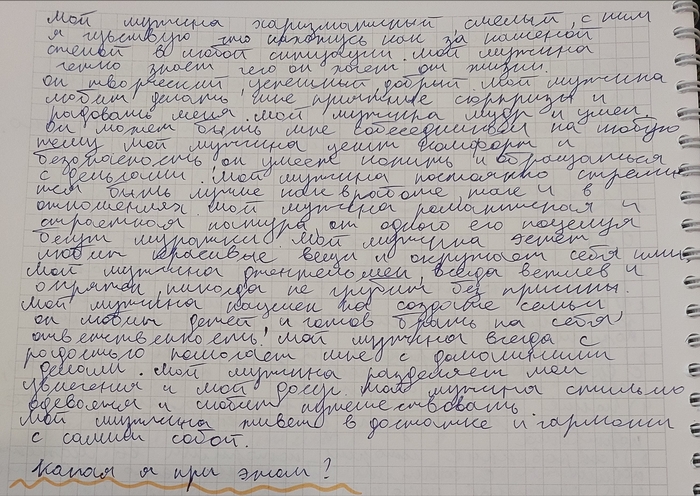 Мой мужчина харизматичный смелый, с ним
я чувствую что нахожусь как за каменой
стеной в любой ситуации. Мой мужчина
точно знает чего он хочет от жизни.
он творческий, успешный, добрый. Мой мужчина
любит делать мне приятные сюрпризы и
радовать меня. Мой мужчина мудр и умен.
он может быть мне собеседником на любую
тему. Мой мужчина ценит комфорт и
безопасность он умеет копить и обращаться
с деньгами. Мой мужчина постоянно стреми
тся быть лучше как в работе, так и в
отношениях. Мой мужчина романтичная и
страстная натура, от одного его поцелуя
бегут мурашки. Мой мужчина эстет
любит красивые вещи и окружает себя ими.
Мой мужчина джентельмен, всегда вежлив и
опрятен, никогда не грубит без причины.
Мой мужчина нацелен на создание семьи
он любит детей и готов брать на себя
ответственность! Мой мужчина всегда с
радостью помогает мне с домашними
делами. Мой мужчина разделяет мои
увлечения и мой досуг. Мой мужчина стильно
одевается и любит путешествовать.
Мой мужчина живет в достатке и гармонии
с самим собой.
Какая я при этом?